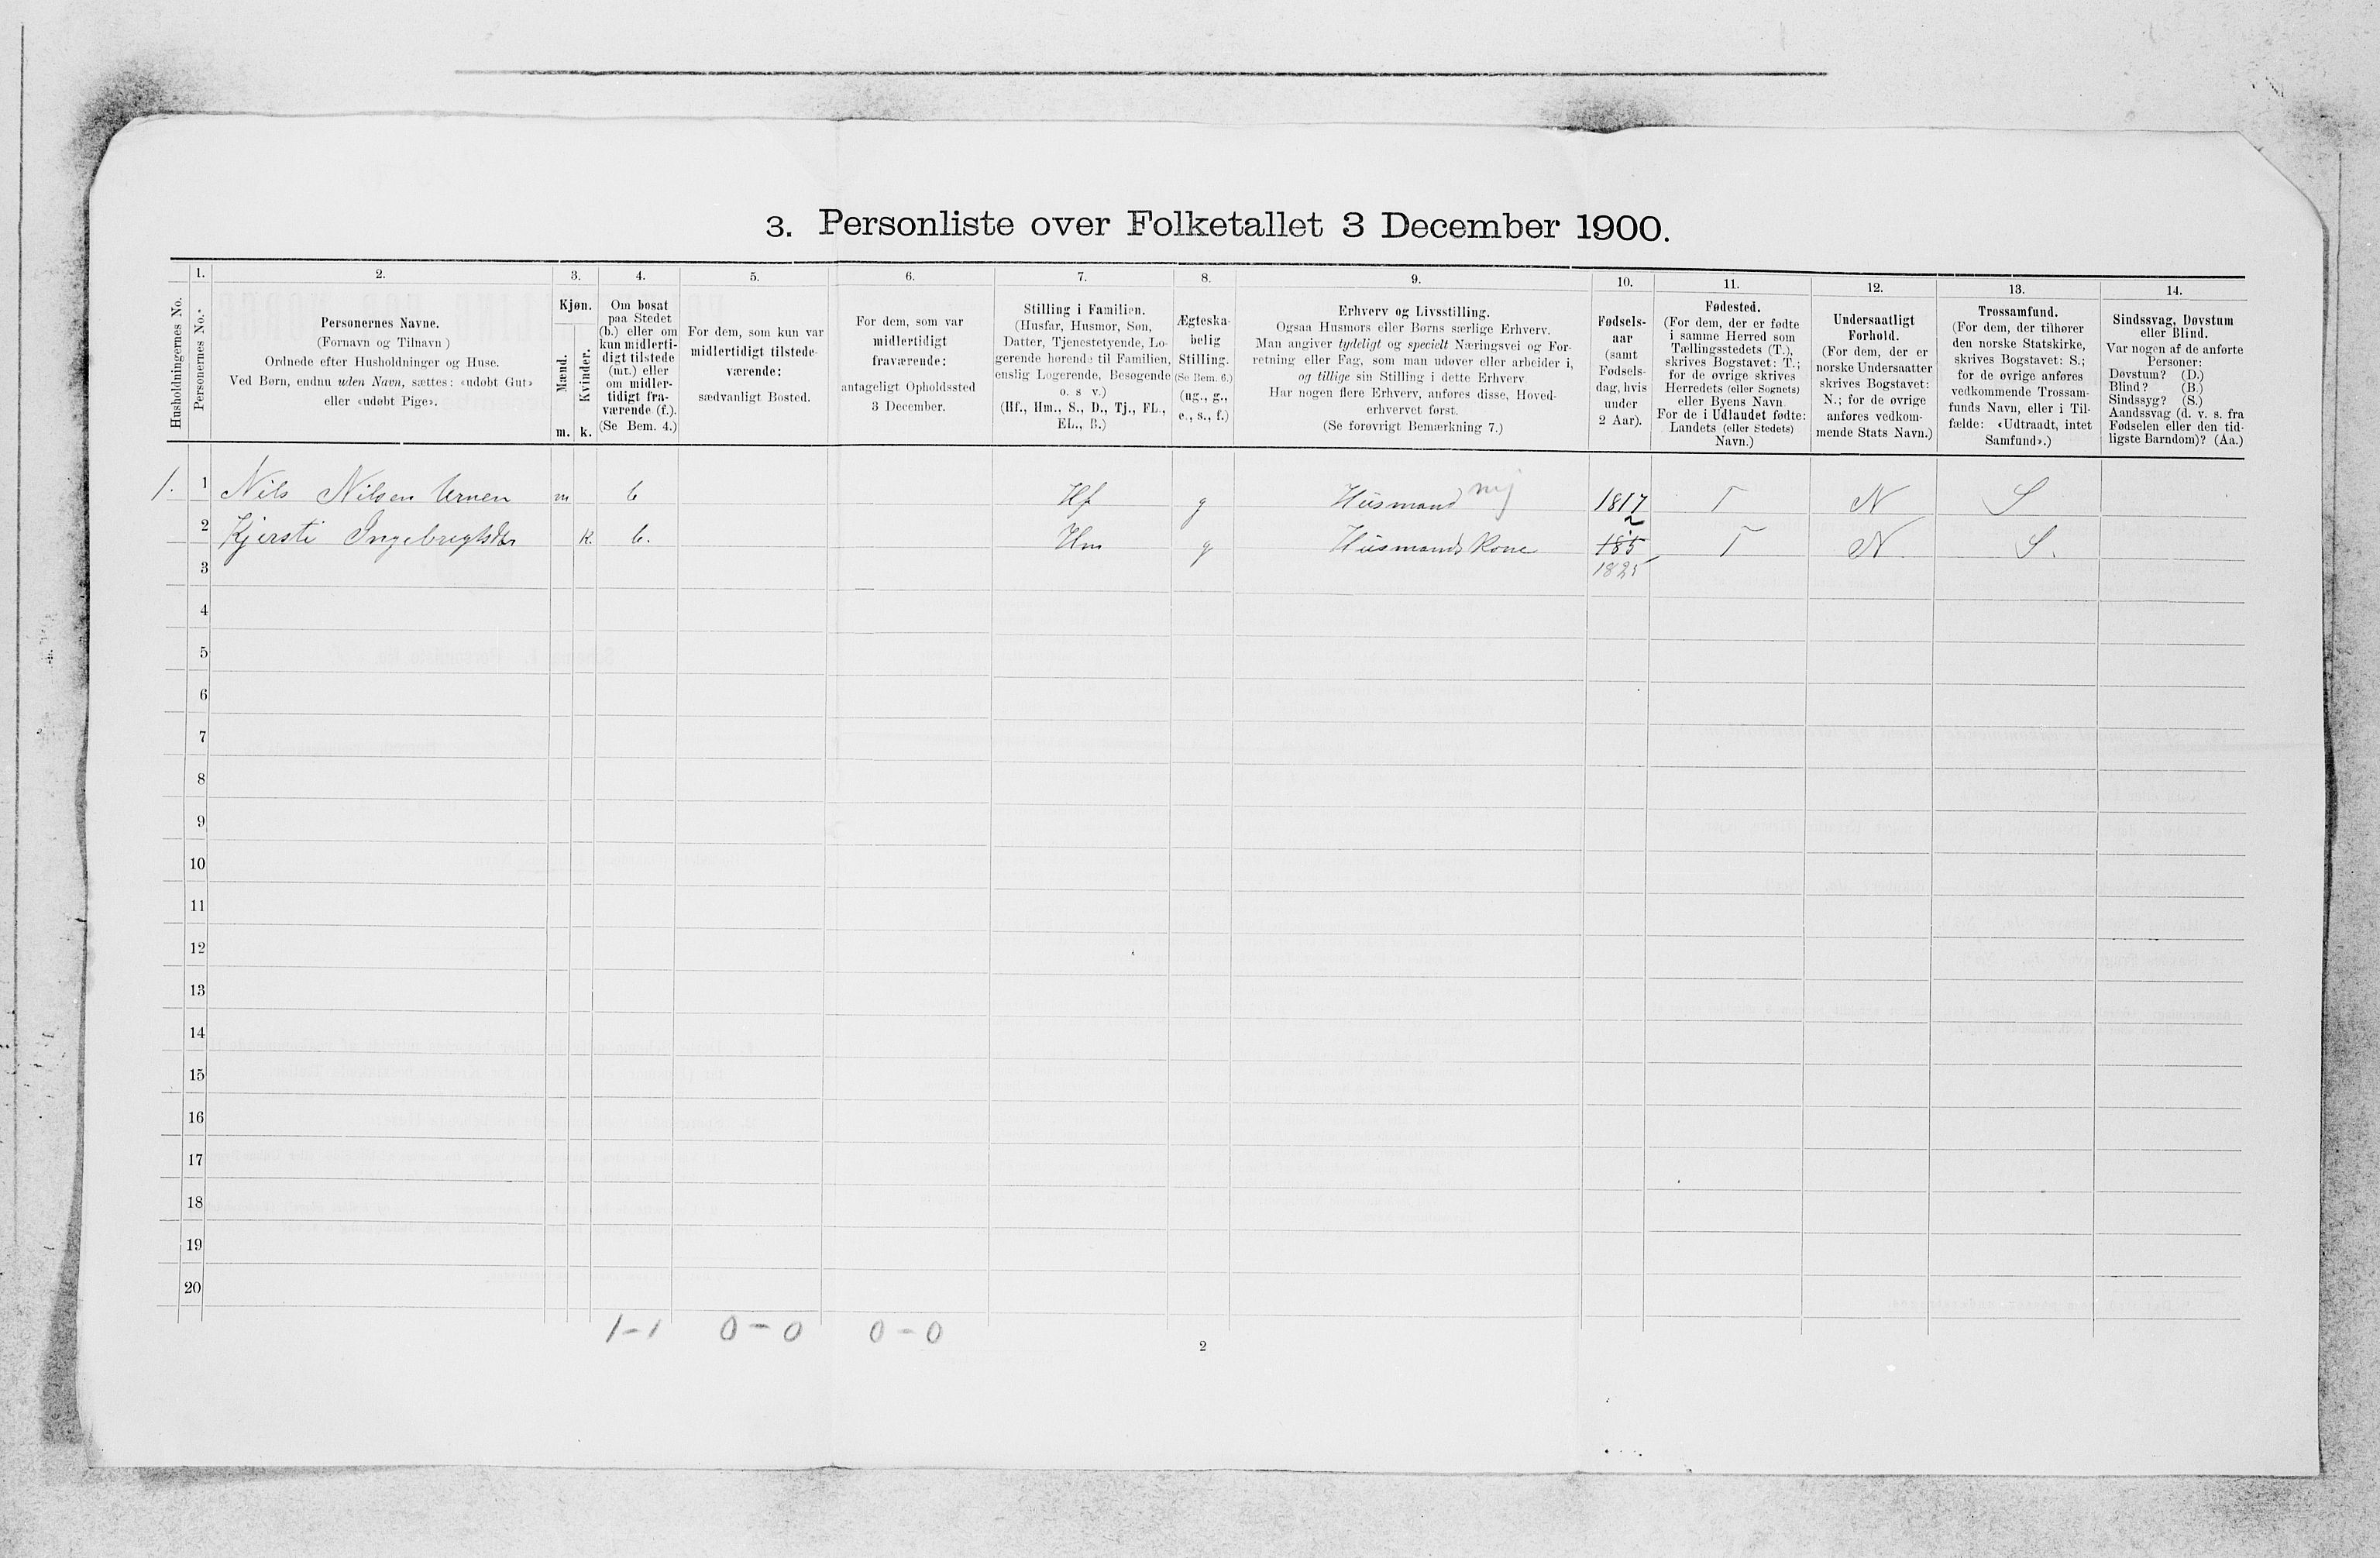 3. Personliste over Folketallet 3 December 1900.
Husholdningernes No.
1.
Personernes No.
2.
Personernes Navne.
(Fornavn og Tilnavn)
Ordnede efter Husholdninger og Huse.
Ved Børn, endnu uden Navn, sættes: «udøbt Gut»
eller «udøbt Pige».
3.
Kjøn.
Mænd.
Kvinder.
m. k.
4.
Om bosat
paa Stedet
(b.) eller om
kun midlerti-
digt tilstede
(mt.) eller
om midler-
tidigt fra-
værende (f.).
(Se Bem. 4.)
5.
For dem, som kun var
midlertidigt tilstede-
værende:
sædvanligt Bosted.
6.
For dem, som var
midlertidigt
fraværende:
antageligt Opholdssted
3 December.
7.
Stilling i Familien.
(Husfar, Husmor, Søn,
Datter, Tjenestetyende, Lo-
gerende hørende til Familien,
enslig Logerende, Besøgende
o. s v.)
(Hf., Hm., S., D., Tj., FL.,
EL., B.)
8.
Ægteska-
belig
Stilling.
(Se Bem. 6.)
(ug., g.,
e., s., f.)
9.
Erhverv og Livsstilling.
Ogsaa Husmors eller Børns særlige Erhverv.
Man angiver tydeligt og specielt Næringsvei og For-
retning eller Fag, som man udøver eller arbeider i,
og tillige sin Stilling i dette Erhverv
Har nogen flere Erhverv, anføres disse, Hoved-
erhvervet først.
(Se forøvrigt Bemærkning 7.)
10.
Fødsels-
aar
(samt
Fødsels-
dag, hvis
under
2 Aar).
11.
Fødested.
(For dem, der er fødte
i samme Herred som
Tællingsstedets (T.),
skrives Bogstavet: T.;
for de øvrige skrives
Herredets (eller Sognets)
eller Byens Navn
For de i Udlandet fødte:
Landets (eller Stedets)
Navn.)
12.
Undersaatligt
Forhold.
(For dem, der er
norske Undersaatter
skrives Bogstavet:
N.; for de øvrige
anføres vedkom-
mende Stats Navn.)
13.
Trossamfund.
(For dem, der tilhører
den norske Statskirke,
skrives Bogstavet: S.;
for de øvrige anføres
vedkommende Trossam-
funds Navn, eller i Til-
fælde: «Udtraadt, intet
Samfund».)
14.
Sindssvag, Døvstum
eller Blind.
Var nogen af de anførte
Personer:
Døvstum? (D.)
Blind? (B.)
Sindssyg? (S.)
Aandssvag (d. v. s. fra
Fødselen eller den tid-
ligste Barndom)? (Aa.)
1. 1 Nils Nilsen m b Hf g Husmand 1817 T N S
2 Kjersti Ingebrigtsdtr k. b. Hm g Husmands Kone 185 T N S.
2
3 1825
4
5
6
7
8
9
10
11
12
13
14
15
16
17
18
19
20
1-1 0-0 0-0
2